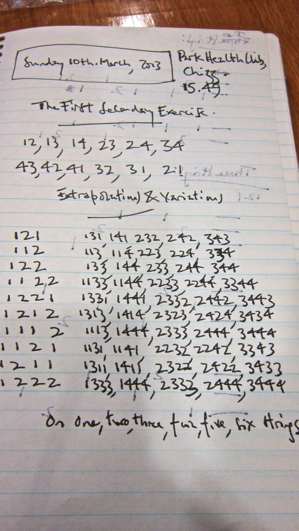 Sunday 10th. March, 2013
Park Health Club,
15.45
The First Secondary Exercise.
12, 13, 14, 23, 24, 34
43, 42 41, 32, 31, 21
Extrapolations & Variations
121 131, 141 232, 242, 343
112 113, 114 223 224, 334
122 133, 144 233, 244 344
1122 1133, 1144 2233 2244 3344
1221 1331, 1441, 2332, 2442, 3443
1212 1313, 1414, 2323, 2424, 3434
1112 1113, 1444, 2333, 2444, 3444
1121 1131, 1141 2232 2242, 3343
1211 1311, 1411, 2322, 2422, 3433
1222 1333, 1444, 2333, 2444, 3444
On one, two, three, four, five, six strings